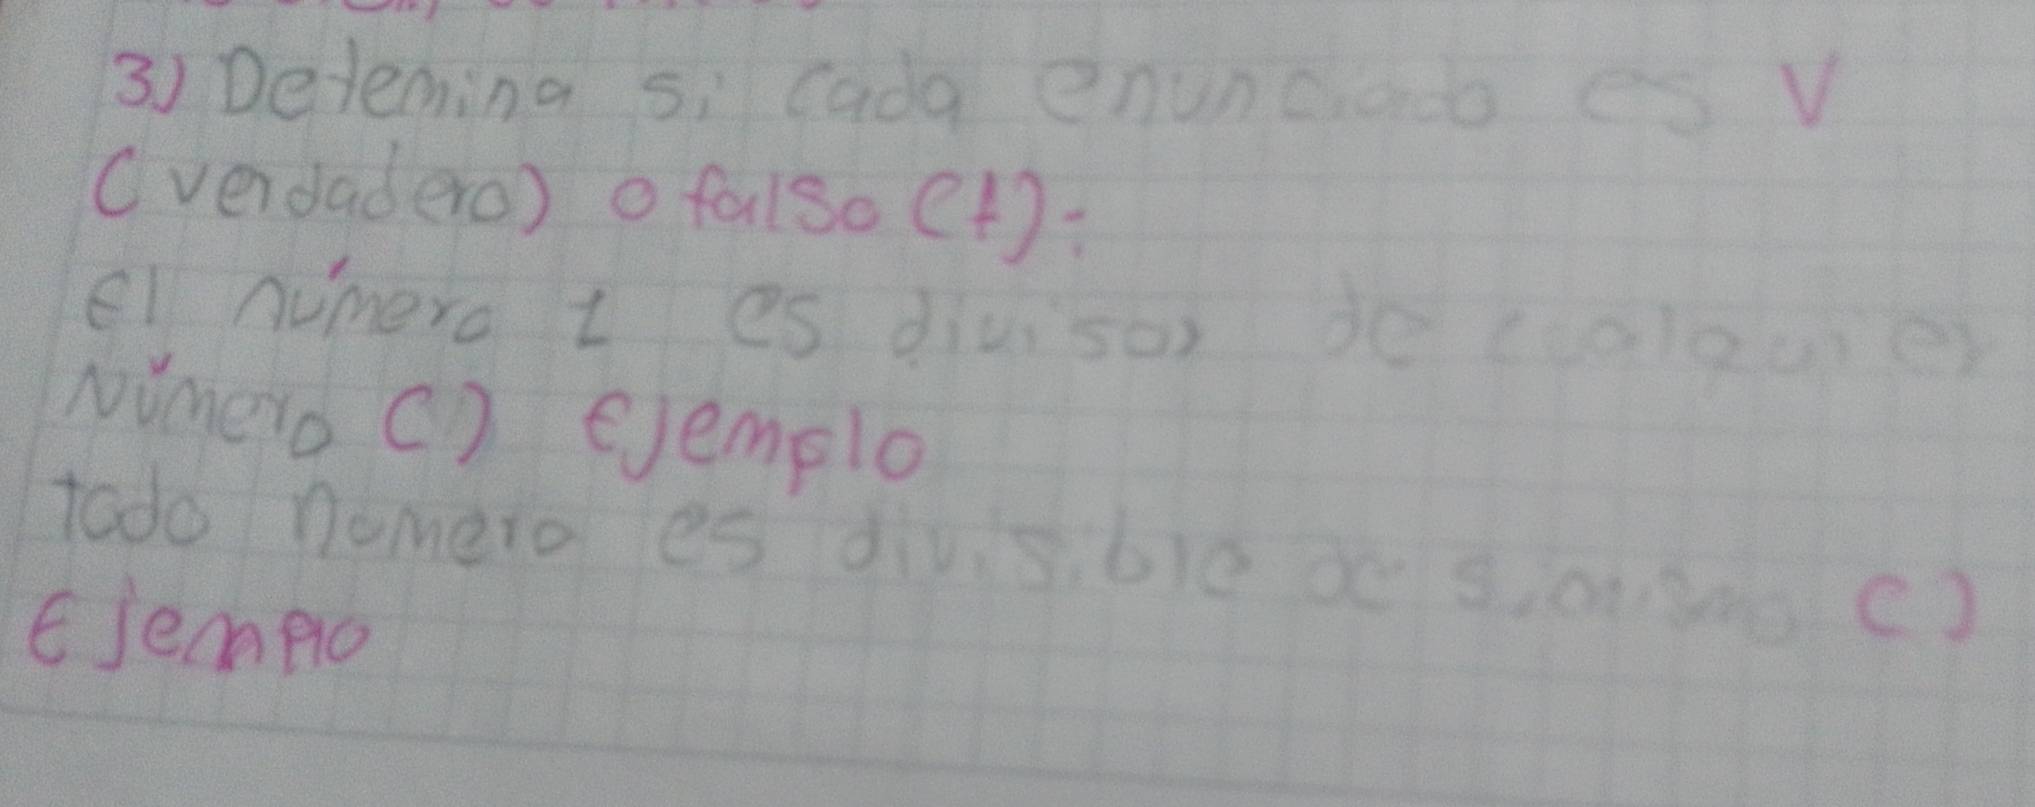 3) Detemina si cada enunciado es V
(verdadero) o falso (f):
El número 1 es divisor de cualquier
Número () Ejemplo
todo numero es divisible de si mismo ()
Ejemplo